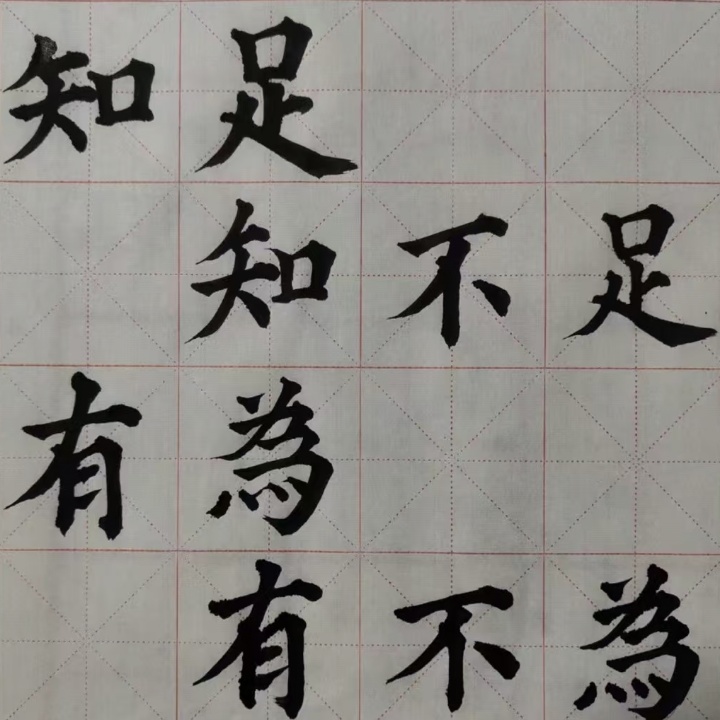 知足
知不足
有為
有不為